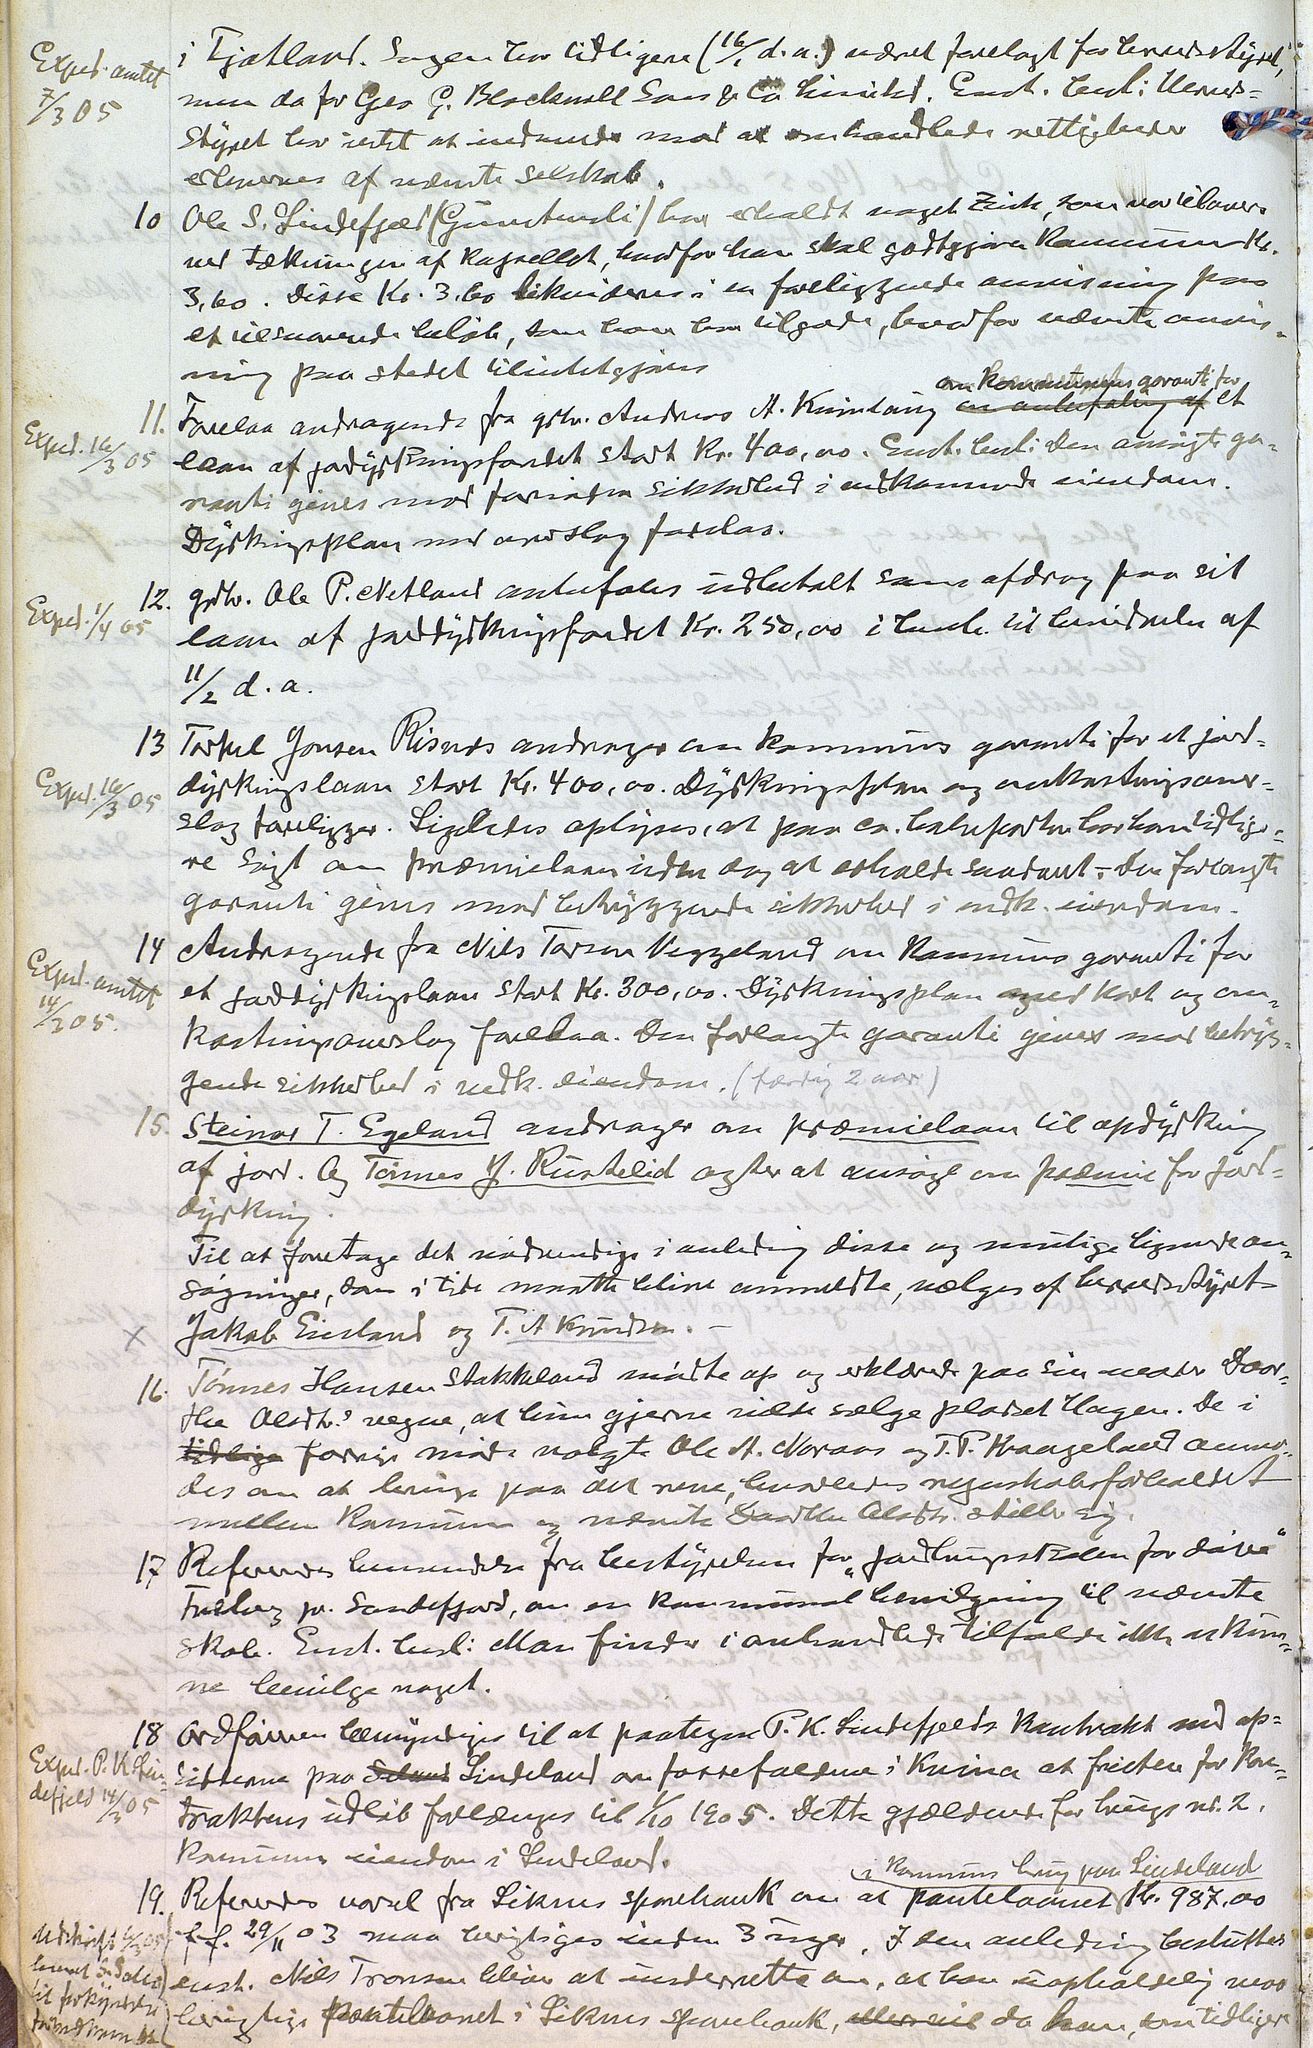 i Fjotland. Sagen har tidligere (16/1 d.a.) været forelagt for herredsstyret,
men da for Geo G. Blackwell Sons & Co Limited. Enst. besl: Herreds-
styret har intet at indvende mod at omhandlede rettigheder
Exped. amtet
7/3 05
erhverves af nævnte selskab.
10 Ole S. Lindefjeld (Gunstveit) har erholdt noget Zink, som var tilovers
ved Tækningen af Kapellet, hvorfor han skal godtgjøre Kommunen Kr.
3,60. Disse Kr. 3,60 likvideres i en foreliggende anvisning paa
et tilsvarende beløb, som han har tilgode, hvorfor nævnte anvis-
ning paa stedet tilintetgjøres
om kommunens garanti for
11. Forelaa andragende fra grbr. Andreas A. Kvinlaug om anbefaling af et
Exped. 16/3 05
laan af jorddyrkningsfondet stort Kr. 400,00. Enst. besl: Den ansøgte ga-
ranti gives mod fornøden sikkerhed i vedkommende eiendom.
Dyrkningsplan med overslag forelaa.
12. grbr. Ole P. Netland anbefales udbetalt som afdrag paa sit
Exped. 1/4 05
laan af jorddyrkningsfondet Kr. 250,00 i henh. til besigtelse af
11/2 d. a.
13 Torkel Jonsen Risnes andrager om kommunens garanti for et jord-
Exped. 16/3 05
dyrkningslaan stort Kr. 400,00. Dyrkningsplan og omkostningsover-
slag foreligger. Ligeledes oplyses, at paa ca. halvparten har han tidlige-
re søgt om præmielaan uden dog at erholde saadant. - Den forlangte
garanti gives mod betryggende sikkerhed i vedk. eiendom.
14 Andragende fra Nils Torsen Veggeland om Kommunens garanti for
Exped. amtet
14/3 05.
et jorddyrkningslaan stort Kr. 300,00. Dyrkningsplan med kart og om-
kostningsoverslag forelaa. Den forlangte garanti gives mod betryg-
gende sikkerhed i vedk. eiendom. (færdig 2 aar)
15. Steinar T. Egeland andrager om præmielaan til opdyrkning
af jord. Og Tønnes J. Rustelid agter at ansøge om præmie for jord-
dyrkning.
Til at foretage det nødvendige i anledning disse og mulige lignende an-
søgninger, som i tide maatte blive anmeldte, vælges af herredsstyret
x Jakob Eiesland og T. A Knudsen. -
16. Tønnes Hansen Stakkeland mødte op og erklærede paa sin moder Dor-
the Olsdtr.s vegne, at hun gjerne vilde sælge pladset Hagen. De i
tidlige forrige møde valgte Ole A. Noraas og T. P. Haugeland anmo-
des om at bringe paa det rene, hvorledes regnskabsforholdet
mellem Kommunen og nævnte Dorthe Olsdtr. stiller sig.
17 Referedes henvendelse fra bestyrelsen for "Jarlsbergsskolen for døve"
 pr. Sandefjord, om en kommunal bevilgning til nævnte
skole. Enst. besl: Man finder i omhandlede tilfælde ikke at kun-
ne bevilge noget.
18 Ordføreren bemyndiges til at paategne P. K. Lindefjelds Kontrakt med op-
Exped. P. K. Lin-
defjeld 14/3 05
sidderne paa Lindeland om fossefaldene i Kvina at fristen for Kon-
traktens udløb forlænges til 1/10 1905. Dette gjældende for brugs nr. 2,
Kommunens eiendom i Lindeland.
i Kommunens brug paa Lindeland
19. Referedes varsel fra Liknes sparebank om at pantelaanet Kr. 987,00
f.f. 29/11 03 maa berigtiges inden 3 uger. I den anledning besluttes
enst. Nils Tronsen bliver at underrette om, at han uopholdelig maa
berigtige pantelaanet i Liknes sparebank, da han, som tidligere